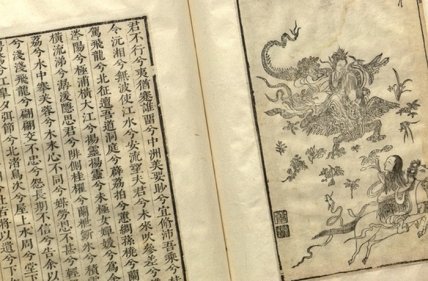 君不行兮夷猶蹇誰留兮中洲美要眇兮宜脩沛吾乘兮桂
令沅湘兮無波使江水兮安流望夫君兮未來吹參差兮
駕飛龍兮北征邅吾道兮洞庭薜荔柏兮蕙綢蓀橈兮蘭
涔陽兮極浦橫大江兮揚靈揚靈兮未極女嬋媛兮為余
橫流涕兮潺湲隱思君兮陫側桂櫂兮蘭枻斲冰兮積雪
荔兮水中搴芙蓉兮木末心不同兮媒勞恩不甚兮輕
兮淺淺飛龍兮翩翩交不忠兮怨長期不信兮告余以
皋夕弭節兮北渚鳥次兮屋上水周兮堂下
將以遺兮下